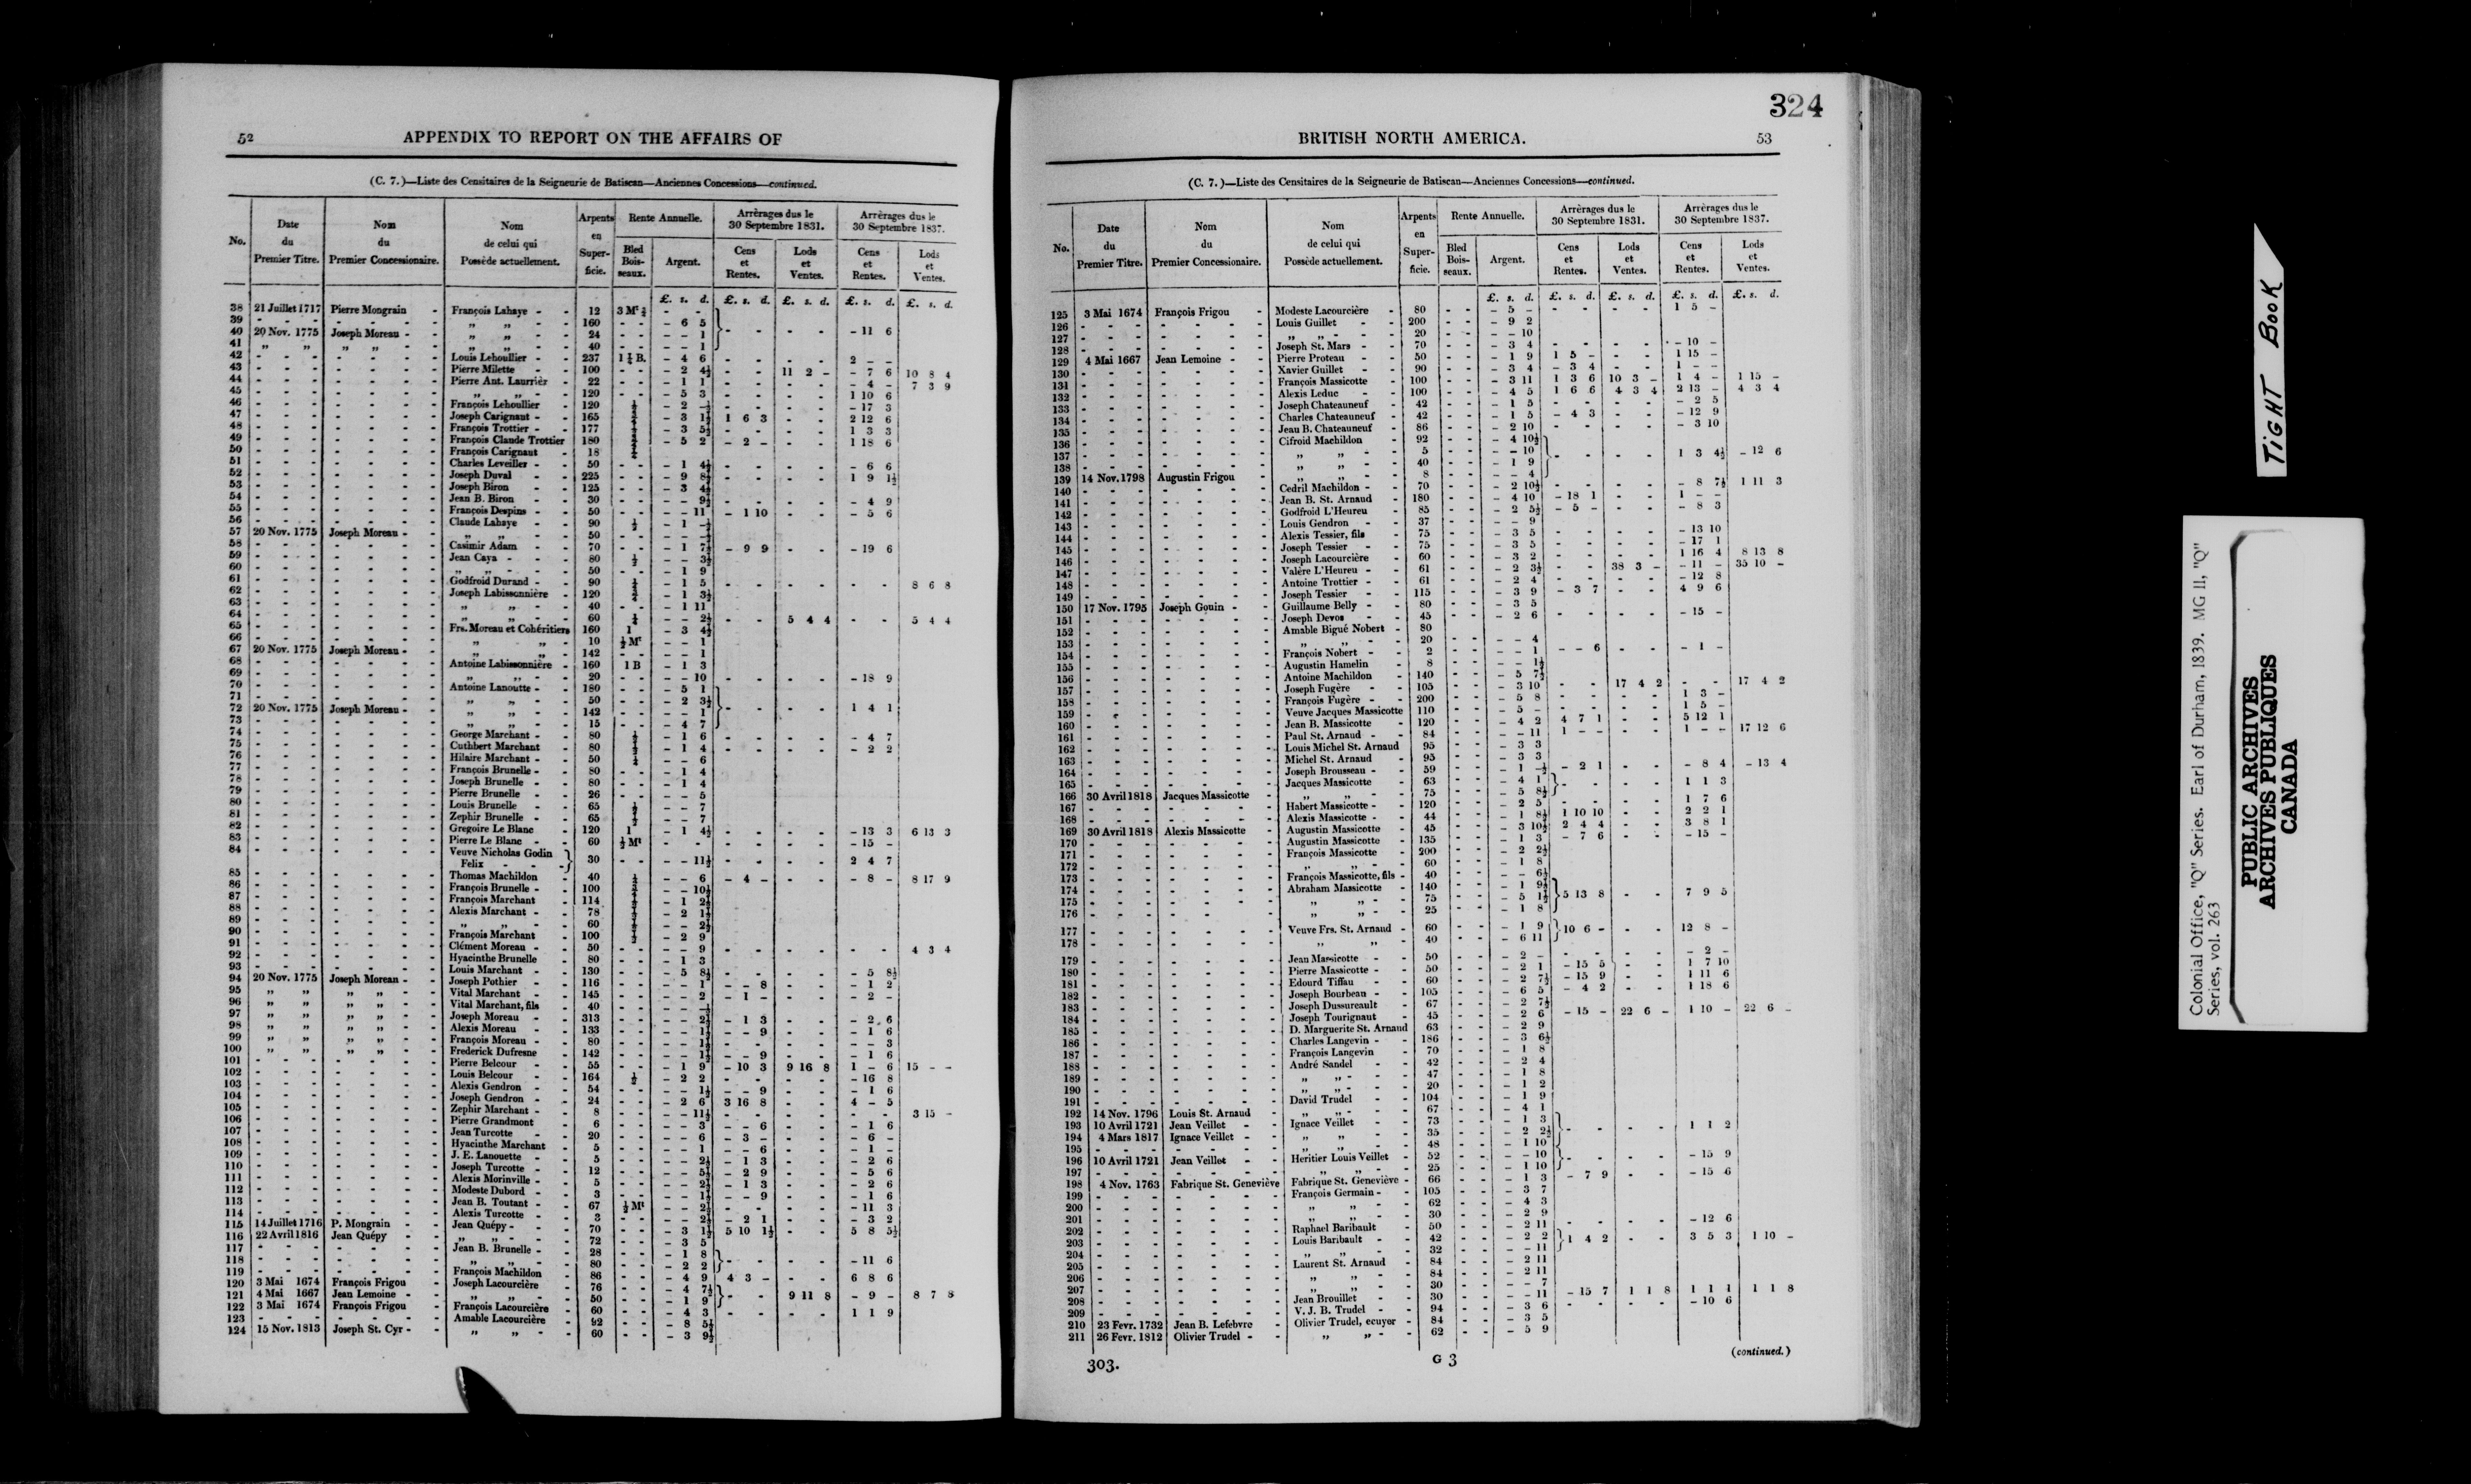 52 APPENDIX TO REPORT ON THE AFFAIRS OF
(C. 7.)—Liste des Censitaires de la Seigneurie de Batiscan—Anciennes Concessions—continued.
No.
Date du Premier Titre.
Nom du Premier Concessionaire.
Nom de celui qui Possède actuellement.
Arpents en Super-ficie.
Rente Annuelle.
Bled Bois-seaux.
Argent.
Arrèrages dus le 30 Septembre 1831.
Cens et Rentes.
Lods et Ventes.
Arrèrages dus le 30 Septembre 1837.
Cens et Rentes.
Lods et Ventes.
£. s. d. £. s. d. £. s. d. £. s. d. £. s. d.
38 21 Juillet 1717 Pierre Mongrain - François Lahaye - - 12
39 - - - „ „ - 160 - - - 6 5
40 20 Nov. 1775 Joseph Moreau - - „ „ - 24 - - - - 1 - 11 6
41 „ „ „ „ - „ „ - 40 - - - - 1
42 Louis Lehoullier - - 237 1¼ B. - 4 6 2 - -
43 Pierre Milette - - 100 - - - 2 4½ 11 2 - - 7 6 10 8 4
44 Pierre Ant. Laurrièr - 22 - - - 1 1 - 4 - 7 3 9
45 „ „ - 120 - - - 5 3 1 10 6
46 François Lehoullier - 120
47 Joseph Carignant - - 165 1 6 3 2 12 6
48 François Trottier - - 177 1 3 3
49 François Claude Trottier 180 - 5 2 - 2 - 1 18 6
50 François Carignaut - 18
51 Charles Leveiller - - 50 - - - 1 4½ - 6 6
52 Joseph Duval - - 225 - - - 9 8½ 1 9 1½
53 Joseph Biron - - 125 - - - 3 4½
54 Jean B. Biron - - 30 - - - - 9½ - 4 9
55 François Despins - - 50 - - - - 11 - 1 10 - 5 6
56 Claude Lahaye - - 90 ½
57 20 Nov. 1775 Joseph Moreau - - „ „ - 50
58 Casimir Adam - - 70 - - - 1 7½ - 9 9 - 19 6
59 Jean Caya - - 80 ½ - - 3½
60 „ „ - 50 - - - 1 9
61 Godfroid Durand - - 90 - 1 5 8 6 8
62 Joseph Labissonnière - 120 - 1 3½
63 „ „ - 40 - - - 1 11
64 „ „ - 60 - - 2½ 5 4 4 5 4 4
65 Frs. Moreau et Cohéritiers 160 1 - 3 4½
66 „ „ - 10 ½ Mt - - 1
67 20 Nov. 1775 Joseph Moreau - - „ „ - 142 - - - - 1
68 Antoine Labissonnière - 160 1 B - 1 3
69 „ „ - 20 - - - - 10 - 18 9
70 Antoine Lanoutte - - 180 - - - 5 1
71 „ „ - 50 - - - 2 3½
72 20 Nov. 1775 Joseph Moreau - - „ „ - 142 - - - - 1 1 4 1
73 „ „ - 15 - - - 4 7
74 George Marchant - - 80 ½ - 1 6 - 4 7
75 Cuthbert Marchant - 80 ½ - 1 4 - 2 2
76 Hilaire Marchant - - 50 ¼ - - 6
77 François Brunelle - - 80 - - - 1 4
78 Joseph Brunelle - - 80 - - - 1 4
79 Pierre Brunelle - - 26 - - - - 5
80 Louis Brunelle - - 65 ½ - - 7
81 Zephir Brunelle - - 65 ½ - - 7
82 Gregoire Le Blanc - 120 1 - 1 4½ - 13 3 6 13 3
83 Pierre Le Blanc - - 60 ½ Mt - 15 -
84 Veuve Nicholas Godin Felix - - - 30 - - - - 11½ 2 4 7
85 Thomas Machildon - 40 - - 6 - 4 - - 8 - 8 17 9
86 François Brunelle - - 100 - - 10½
87 François Marchant - 114 - 1 2½
88 Alexis Marchant - - 78 - 2 1½
89 „ „ - 60 - - 2½
90 François Marchant - 100 ½ - 2 9
91 Clément Moreau - - 50 - - - - 9 4 3 4
92 Hyacinthe Brunelle - 80 - - - 1 3
93 Louis Marchant - - 130 - - - 5 8½ - 5 8½
94 20 Nov. 1775 Joseph Morean - - Joseph Pothier - - 116 - - - - 1 - - 8 - 1 2
95 „ „ „ „ - Vital Marchant - - 145 - - - - 2 - 1 - - 2 -
96 „ „ „ „ - Vital Marchant, fils - 40
97 „ „ „ „ - Joseph Moreau - - 313 - - - - 2½ - 1 3 - 2 6
98 „ „ „ „ - Alexis Moreau - - 133 - - - - 1½ - - 9 - 1 6
99 „ „ „ „ - François Moreau - - 80 - - - - 1½ - - 3
100 „ „ „ „ - Frederick Dufresne - 142 - - - - 1½ - - 9 - 1 6
101 Pierre Belcour - - 55 - - - 1 9 - 10 3 9 16 8 1 - 6 15 - -
102 Louis Belcour - - 164 ½ - 2 2 - 16 8
103 Alexis Gendron - - 54 - - - - 1½ - - 9 - 1 6
104 Joseph Gendron - - 24 - - - 2 6 3 16 8 4 - 5
105 Zephir Marchant - - 8 - - - - 11½ 3 15 -
106 Pierre Grandmont - 6 - - - - 3 - - 6 - 1 6
107 Jean Turcotte - - 20 - - - - 6 - 3 - - 6 -
108 Hyacinthe Marchant - 5 - - - - 1 - - 6 - 1 -
109 J. E. Lanouette - - 5 - - - - 2½ - 1 3 - 2 6
110 Joseph Turcotte - - 12 - - - - 5½ - 2 9 - 5 6
111 Alexis Morinville - - 5 - - - - 2½ - 1 3 - 2 6
112 Modeste Dubord - - 3 - - - - 1½ - - 9 - 1 6
113 Jean B. Toutant - - 67 ½ Mt - - 2½ - 11 3
114 Alexis Turcotte - - 3 - - - - 2½ - 2 1 - 3 2
115 14 Juillet 1716 P. Mongrain - - Jean Quépy - - 70 - - - 3 1½ 5 10 1½ 5 8 5½
116 22 Avril 1816 Jean Quépy - „ „ - 72 - - - 3 5
117 Jean B. Brunelle - - 28 - - - 1 8
118 „ „ - 80 - - - 2 2 - 11 6
119 François Machildon - 86 - - - 4 9 4 3 - 6 8 6
120 3 Mai 1674 François Frigou - Joseph Lacourcière - 76 - - - 4 7½
121 4 Mai 1667 Jean Lemoine - - „ „ - 50 - - - 1 9 9 11 8 - 9 - 8 7 8
122 3 Mai 1674 François Frigou - François Lacourcière - 60 - - - 4 3 1 1 9
123 Amable Lacourcière - 92 - - - 8 5½
124 15 Nov. 1813 Joseph St. Cyr - - „ „ - 60 - - - 3 9½
324
BRITISH NORTH AMERICA. 53
(C. 7.)—Liste des Censitaires de la Seigneurie de Batiscan—Anciennes Concessions—continued.
No.
Date du Premier Titre.
Nom du Premier Concessionaire.
Nom de celui qui Possède actuellement.
Arpents en Super-ficie.
Rente Annuelle.
Bled Bois-seaux.
Argent.
Arrèrages dus le 30 Septembre 1831.
Cens et Rentes.
Lods et Ventes.
Arrèrages dus le 30 Septembre 1837.
Cens et Rentes.
Lods et Ventes.
£. s. d. £. s. d. £. s. d. £. s. d. £. s. d.
125 3 Mai 1674 François Frigou - Modeste Lacourcière - 80 - - - 5 - 1 5 -
126 Louis Guillet - - 200 - - - 9 2
127 „ „ - 20 - - - - 10
128 Joseph St. Mars - - 70 - - - 3 4 - 10 -
129 4 Mai 1667 Jean Lemoine - - Pierre Proteau - - 50 - - - 1 9 1 5 - 1 15 -
130 Xavier Guillet - - 90 - - - 3 4 - 3 4 1 - -
131 François Massicotte - 100 - - - 3 11 1 3 6 10 3 - 1 4 - 1 15 -
132 Alexis Leduc - - 100 - - - 4 5 1 6 6 4 3 4 2 13 - 4 3 4
133 Joseph Chateauneuf - 42 - - - 1 5 - 2 5
134 Charles Chateauneuf - 42 - - - 1 5 - 4 3 - 12 9
135 Jeau B. Chateauneuf - 86 - - - 2 10 - 3 10
136 Cifroid Machildon - 92 - - - 4 10½
137 „ „ - 5 - - - - 10 1 3 4½ - 12 6
138 „ „ - 40 - - - 1 9
139 14 Nov. 1798 Augustin Frigou - „ „ - 8 - - - - 4
140 Cedril Machildon - - 70 - - - 2 10½ - 8 7½ 1 11 3
141 Jean B. St. Arnaud - 180 - - - 4 10 - 18 1 1 - -
142 Godfroid L'Heureu - 85 - - - 2 5½ - 5 - - 8 3
143 Louis Gendron - - 37 - - - - 9
144 Alexis Tessier, fils - 75 - - - 3 5 - 13 10
145 Joseph Tessier - - 75 - - - 3 5 - 17 1
146 Joseph Lacourcière - 60 - - - 3 2 1 16 4 8 13 8
147 Valère L'Heureu - - 61 - - - 2 3½ 38 3 - - 11 - 35 10 -
148 Antoine Trottier - - 61 - - - 2 4 - 12 8
149 Joseph Tessier - - 115 - - - 3 9 - 3 7 4 9 6
150 17 Nov. 1795 Joseph Gouin - - Guillaume Belly - - 80 - - - 3 5
151 Joseph Devos - - 45 - - - 2 6 - 15 -
152 Amable Bigué Nobert - 80
153 „ „ - 20 - - - - 4
154 François Nobert - - 2 - - - - 1 - - 6 - 1 -
155 Augustin Hamelin - 8 - - - - 1½
156 Antoine Machildon - 140 - - - 5 7½
157 Joseph Fugère - - 105 - - - 3 10 17 4 2 17 4 2
158 François Fugère - - 200 - - - 5 8 1 3 -
159 Veuve Jacques Massicotte 110 - - - 5 - 1 5 -
160 Jean B. Massicotte - 120 - - - 4 2 4 7 1 5 12 1
161 Paul St. Arnaud - - 84 - - - - 11 1 - - 1 - - 17 12 6
162 Louis Michel St. Arnaud 95 - - - 3 3
163 Michel St. Arnaud - 95 - - - 3 3
164 Joseph Brousseau - - 59 - - - 1 -½ - 2 1 - 8 4 - 13 4
165 Jacques Massicotte - 63 - - - 4 1 1 1 3
166 30 Avril 1818 Jacques Massicotte - „ „ - 75 - - - 5 8½
167 Habert Massicotte - - 120 - - - 2 5 1 7 6
168 Alexis Massicotte - - 44 - - - 1 8½ 1 10 10 2 2 1
169 30 Avril 1818 Alexis Massicotte - Augustin Massicotte - 45 - - - 3 10½ 2 4 4 3 8 1
170 Augustin Massicotte - 135 - - - 1 3 - 7 6 - 15 -
171 François Massicotte - 200 - - - 2 2½
172 „ „ - 60 - - - 1 8
173 François Massicotte, fils - 40 - - - - 6½
174 Abraham Massicotte - 140 - - - 1 9½
175 „ „ - 75 - - - 5 1½ 5 13 8 7 9 5
176 „ „ - 25 - - - 1 8
177 Veuve Frs. St. Arnaud - 60 - - - 1 9 10 6 - 12 8 -
178 „ „ 40 - - - 6 11
179 Jean Massicotte - - 50 - - - 2 - - 2 -
180 Pierre Massicotte - - 50 - - - 2 1 - 15 5 1 7 10
181 Edourd Tiffau - - 60 - - - 2 7½ - 15 9 1 11 6
182 Joseph Bourbeau - - 105 - - - 6 5 - 4 2 1 18 6
183 Joseph Dussureault - 67 - - - 2 7½
184 Joseph Tourignaut - 45 - - - 2 6 - 15 - 22 6 - 1 10 - 22 6 -
185 D. Marguerite St. Arnaud 63 - - - 2 9
186 Charles Langevin - - 186 - - - 3 6½
187 François Langevin - 70 - - - 1 8
188 André Sandel - - 42 - - - 2 4
189 „ „ - 47 - - - 1 8
190 „ „ - 20 - - - 1 2
191 David Trudel - - 104 - - - 1 9
192 14 Nov. 1796 Louis St. Arnaud - „ „ - 67 - - - 4 1
193 10 Avril 1721 Jean Veillet - - Ignace Veillet - - 73 - - - 1 3
194 4 Mars 1817 Ignace Veillet - - „ „ - 35 - - - 2 2½ 1 1 2
195 „ „ - 48 - - - 1 10
196 10 Avril 1721 Jean Veillet - - Heritier Louis Veillet - 52 - - - - 10 - 15 9
197 „ „ - 25 - - - 1 10
198 4 Nov. 1763 Fabrique St. Geneviève Fabrique St. Geneviève - 66 - - - 1 3 - 7 9 - 15 6
199 François Germain - - 105 - - - 3 7
200 „ „ - 62 - - - 4 3
201 „ „ - 30 - - - 2 9
202 Raphael Baribault - 50 - - - 2 11 - 12 6
203 Louis Baribault - - 42 - - - 2 2 1 4 2 3 5 3 1 10 -
204 „ „ - 32 - - - - 11
205 Laurent St. Arnaud - 84 - - - 2 11
206 „ „ - 84 - - - 2 11
207 „ „ - 30 - - - - 7
208 Jean Brouillet - - 30 - - - - 11 - 15 7 1 1 8 1 1 1 1 1 8
209 V. J. B. Trudel - - 94 - - - 3 6 - 10 6
210 23 Fevr. 1732 Jean B. Lefebvre - Olivier Trudel, ecuyer - 84 - - - 3 5
211 26 Fevr. 1812 Olivier Trudel - - „ „ - 62 - - - 5 9
303. G 3 (continued.)
TIGHT BOOK
Colonial Office, "Q" Series. Earl of Durham, 1839. MG II, "Q"
Series, vol. 263
PUBLIC ARCHIVES
ARCHIVES PUBLIQUES
CANADA